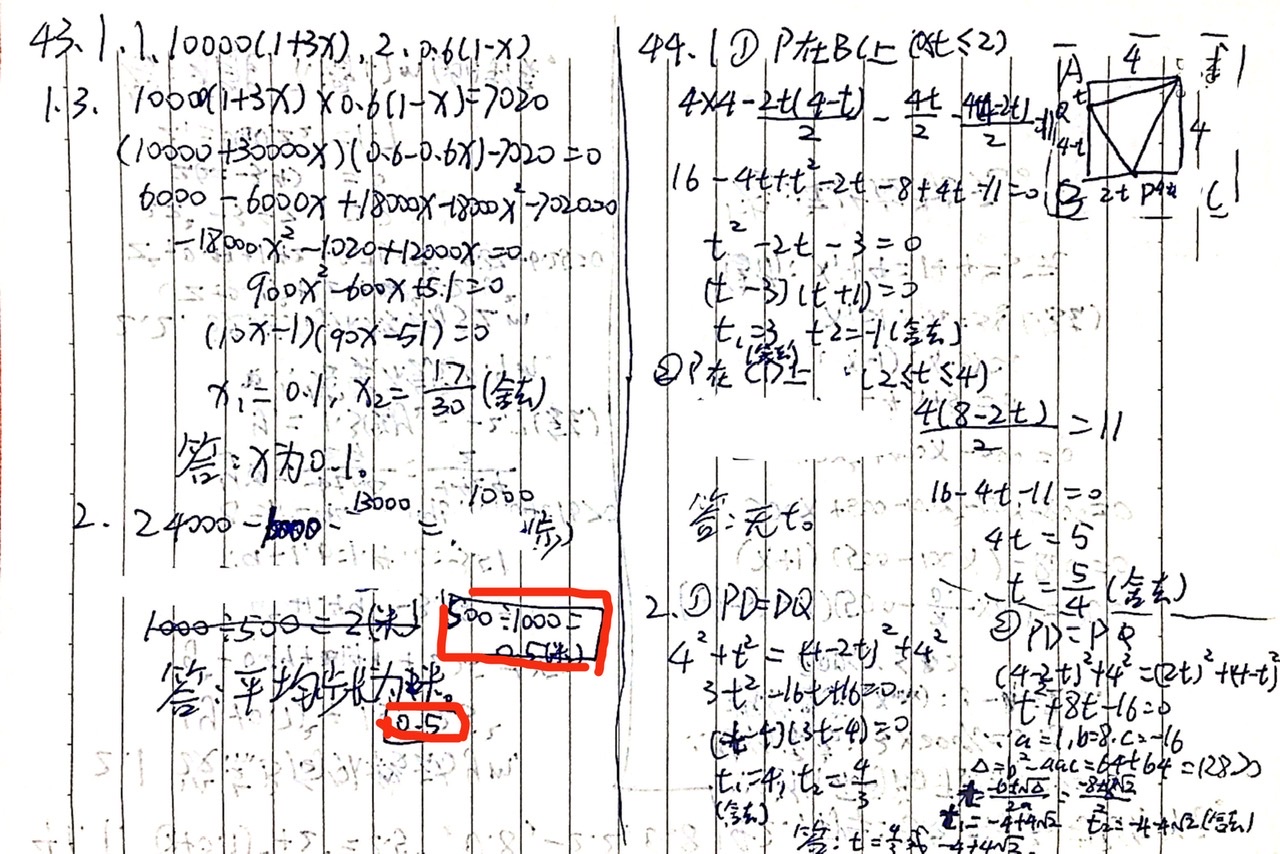 43.1.1.10000(1+3x).2.0.6(1-x)
1.3. 10000(1+3x)×0.6(1-x)=7020
(10000+30000x)(0.6-0.6x)-7020=0
6000-6000x+18000x-18000x²-7020=0
-18000x²-1020+12000x=0.
900x²-600x+51=0
(10x-1)(90x-51)=0
x₁=0.1, x₂=17/30(舍去)
答:x为0.1。
13000 1000
2. 24000-10000- = (步)
1000÷500=2(米)
500÷1000=
0.5(米)
答:平均步长为 米。
0.5
44.1①P在BC上(0≤t≤2)
4×4-2t(4-t)/2-4t/2-4(4-2t)/2=11
16-4t+t²-2t-8+4t-11=0
t²-2t-3=0
(t-3)(t+1)=0
t₁=3, t2=-1(舍去)
(舍去)
②P在CD上 (2≤t≤4)
4(8-2t)/2=11
16-4t-11=0
4t=5
t=5/4(舍去)
答:无t。
A 4
t
Q
4-t
4
B 2t P 4-2t C
2.①PD=DQ
4²+t²=(4-2t)²+4²
3t²-16t+16=0
(t-4)(3t-4)=0
t₁=4, t₂=4/3
(舍去)
②PD=PQ
(4-2t)²+4²=(2t)²+(4-t)²
t²+8t-16=0
a=1,b=8.c=-16
Δ=b²-4ac=64+64=128>0
t=-b±√Δ/2a=-8±8√2/2
t₁=-4+4√2 t₂=-4-4√2(舍去)
答:t=4/3或-4+4√2.